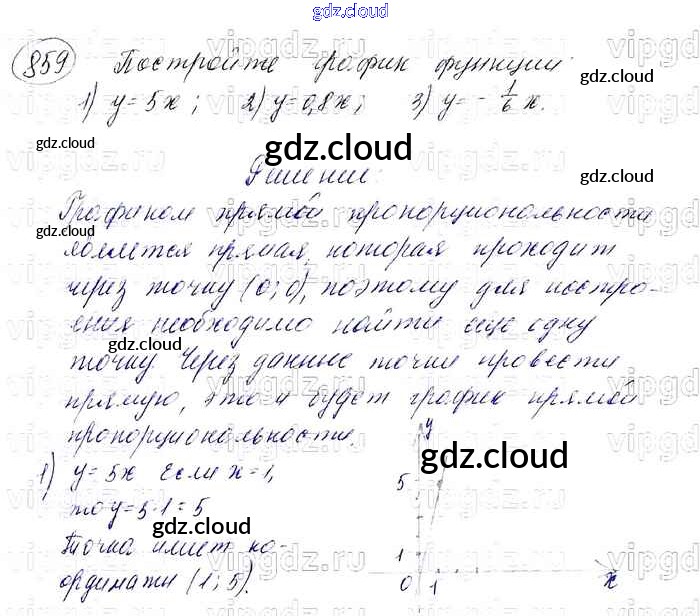 gdz.cloud
859 Постройте график функции:
1) y=5x; 2) y=0,8x; 3) y=-1/6 x.
Решение:
Графиком прямой пропорциональности
является прямая, которая проходит
через точку (0; 0), поэтому для постро-
ения необходимо найти еще одну
точку. Через данные точки провести
прямую, это и будет график прямой
пропорциональности.
1) y=5x Если x=1,
то y=5·1=5
Точка имеет ко-
ординаты (1; 5).
y
5
1
0 1 x
gdz.cloud
gdz.cloud
gdz.cloud
gdz.cloud
gdz.cloud
gdz.cloud
gdz.cloud
gdz.cloud
gdz.cloud